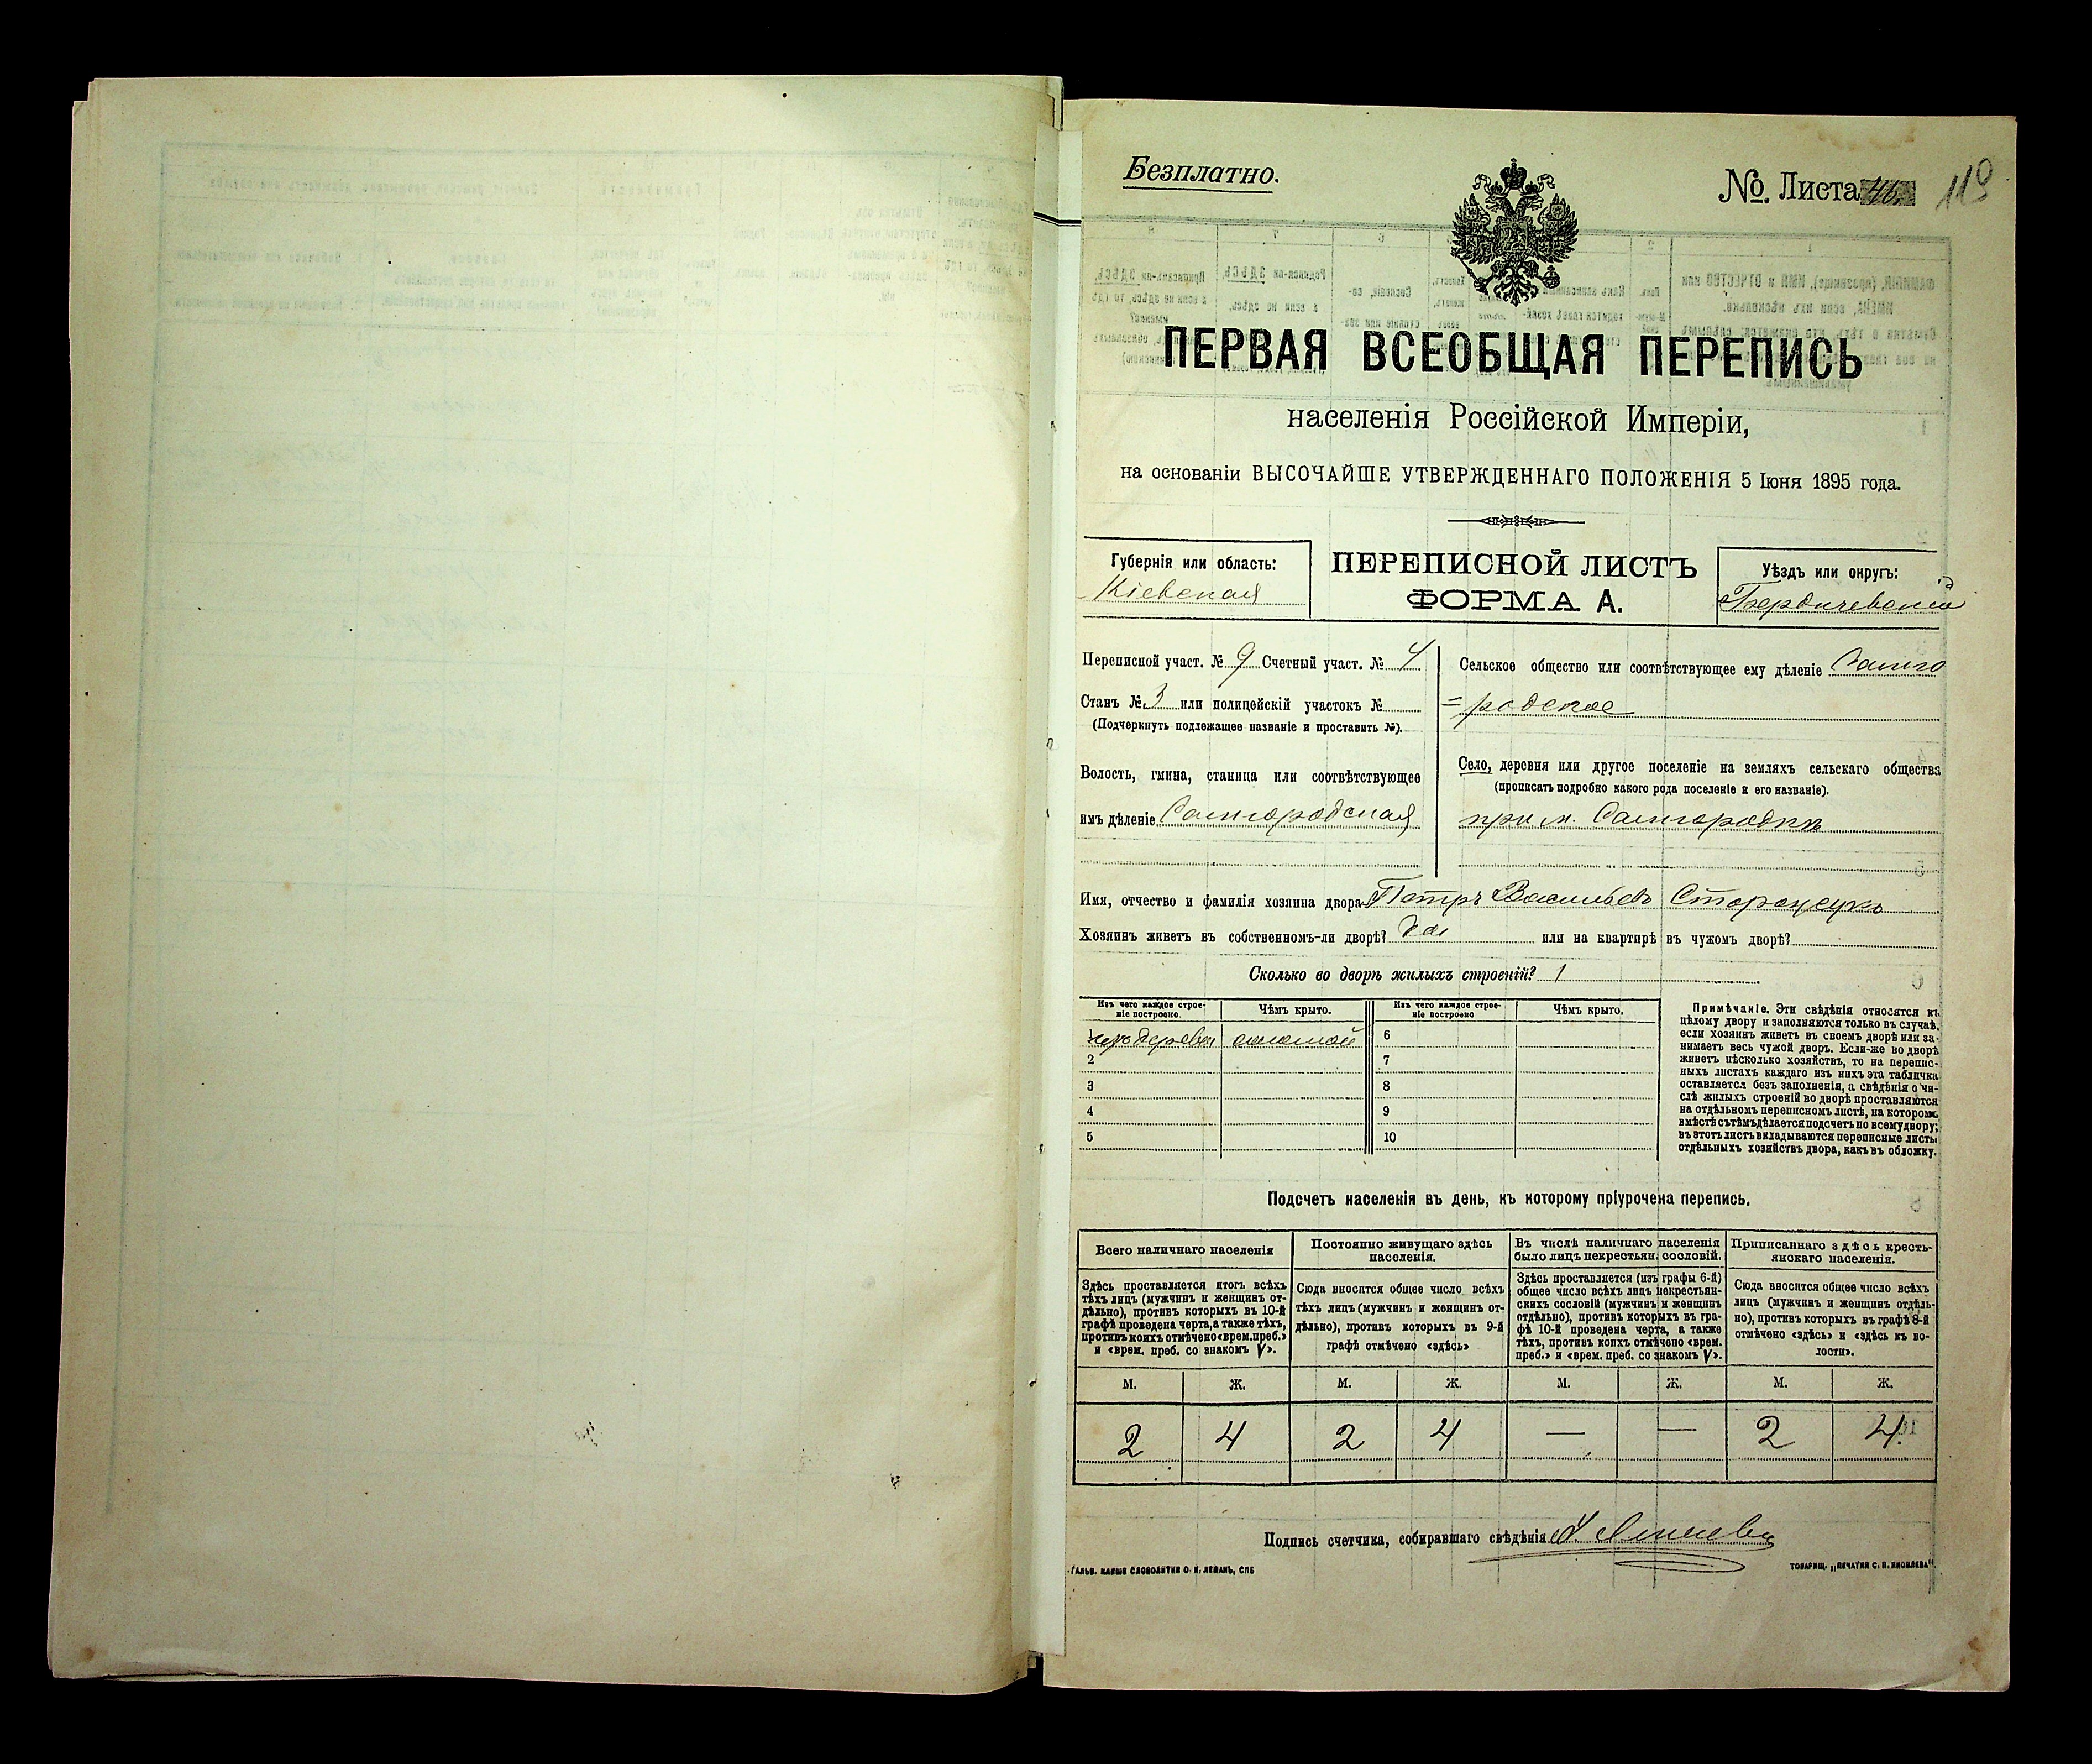 Безплатно.
№. Листа 46. 119
ПЕРВАЯ ВСЕОБЩАЯ ПЕРЕПИСЬ
населенія Россійской Имперіи,
на основаніи ВЫСОЧАЙШЕ УТВЕРЖДЕННАГО ПОЛОЖЕНІЯ 5 Іюня 1895 года.
Губернія или область:
Кіевская
ПЕРЕПИСНОЙ ЛИСТЪ
ФОРМА А.
Уѣздъ или округъ:
Бердичевскій
Переписной участ. № 9 Счетный участ. № 4
Станъ № 3 или полицейскій участокъ №
(Подчеркнуть подлежащее названіе и проставить №).
Волость, гмина, станица или соотвѣтствующее
имъ дѣленіе Самгородская
Сельское общество или соотвѣтствующее ему дѣленіе Самго
=родское
Село, деровня или другое поселеніе на земляхъ сельскаго общества
(прописать подробно какого рода поселеніе и его названіе).
при м. Самгородкѣ
Имя, отчество и фамилія хозяина двора Петръ Васильевъ Сторожукъ
Хозяинъ живетъ въ собственномъ-ли дворѣ? да или на квартирѣ въ чужомъ дворѣ?
Сколько во дворѣ жилыхъ строеній? 1
Изъ чего каждое строе-
ніе построено.
Чѣмъ крыто.
Изъ чего каждое строе-
ніе построено
Чѣмъ крыто.
1 соломой 6
2 7
3 8
4 9
5 10
Примѣчаніе. Эти свѣдѣнія относятся къ
цѣлому двору и заполняются только въ случаѣ,
если хозяинъ живетъ въ своемъ дворѣ или за-
нимаетъ весь чужой дворъ. Если-же во дворѣ
живетъ нѣсколько хозяйствъ, то на перепис-
ныхъ листахъ каждаго изъ нихъ эта табличка
оставляется безъ заполненія, а свѣдѣнія о чи-
слѣ жилыхъ строеній во дворѣ проставляются
на отдѣльномъ переписномъ листѣ, на которомъ
вмѣстѣ съ тѣмъ дѣлается подсчетъ по всему двору;
въ этотъ листъ вкладываются переписные листы
отдѣльныхъ хозяйствъ двора, какъ въ обложку.
Подсчетъ населенія въ день, къ которому пріурочена перепись.
Всего наличнаго населенія
Здѣсь проставляется итогъ всѣхъ
тѣхъ лицъ (мужчинъ и женщинъ от-
дѣльно), противъ которыхъ въ 10-й
графѣ проведена черта, а также тѣхъ,
противъ коихъ отмѣчено «врем. преб.»
и «врем. преб. со знакомъ V».
Постоянно живущаго здѣсь
населенія.
Сюда вносится общее число всѣхъ
тѣхъ лицъ (мужчинъ и женщинъ от-
дѣльно), противъ которыхъ въ 9-й
графѣ отмѣчено «здѣсь»
Въ числѣ наличнаго населенія
было лицъ некрестьян. сословій.
Здѣсь проставляется (изъ графы 6-й)
общее число всѣхъ лицъ некрестьян-
скихъ сословій (мужчинъ и женщинъ
отдѣльно), противъ которыхъ въ гра-
фѣ 10-й проведена черта, а также
тѣхъ, противъ коихъ отмѣчено «врем.
преб.» и «врем. преб. со знакомъ V».
Приписаннаго здѣсь кресть-
янскаго населенія.
Сюда вносится общее число всѣхъ
лицъ (мужчинъ и женщинъ отдѣль-
но), противъ которыхъ въ графѣ 8-й
отмѣчено «здѣсь» и «здѣсь къ во-
лости».
М. Ж. М. Ж. М. Ж. М. Ж.
2 4 2 4 — — 2 4.
Подпись счетчика, собиравшаго свѣдѣнія
ГАЛЬВ. КЛИШЕ СЛОВОЛИТНИ О. И. ЛЕМАНЪ, СПБ
ТОВАРИЩ. „ПЕЧАТНЯ С. П. ЯКОВЛЕВА“.